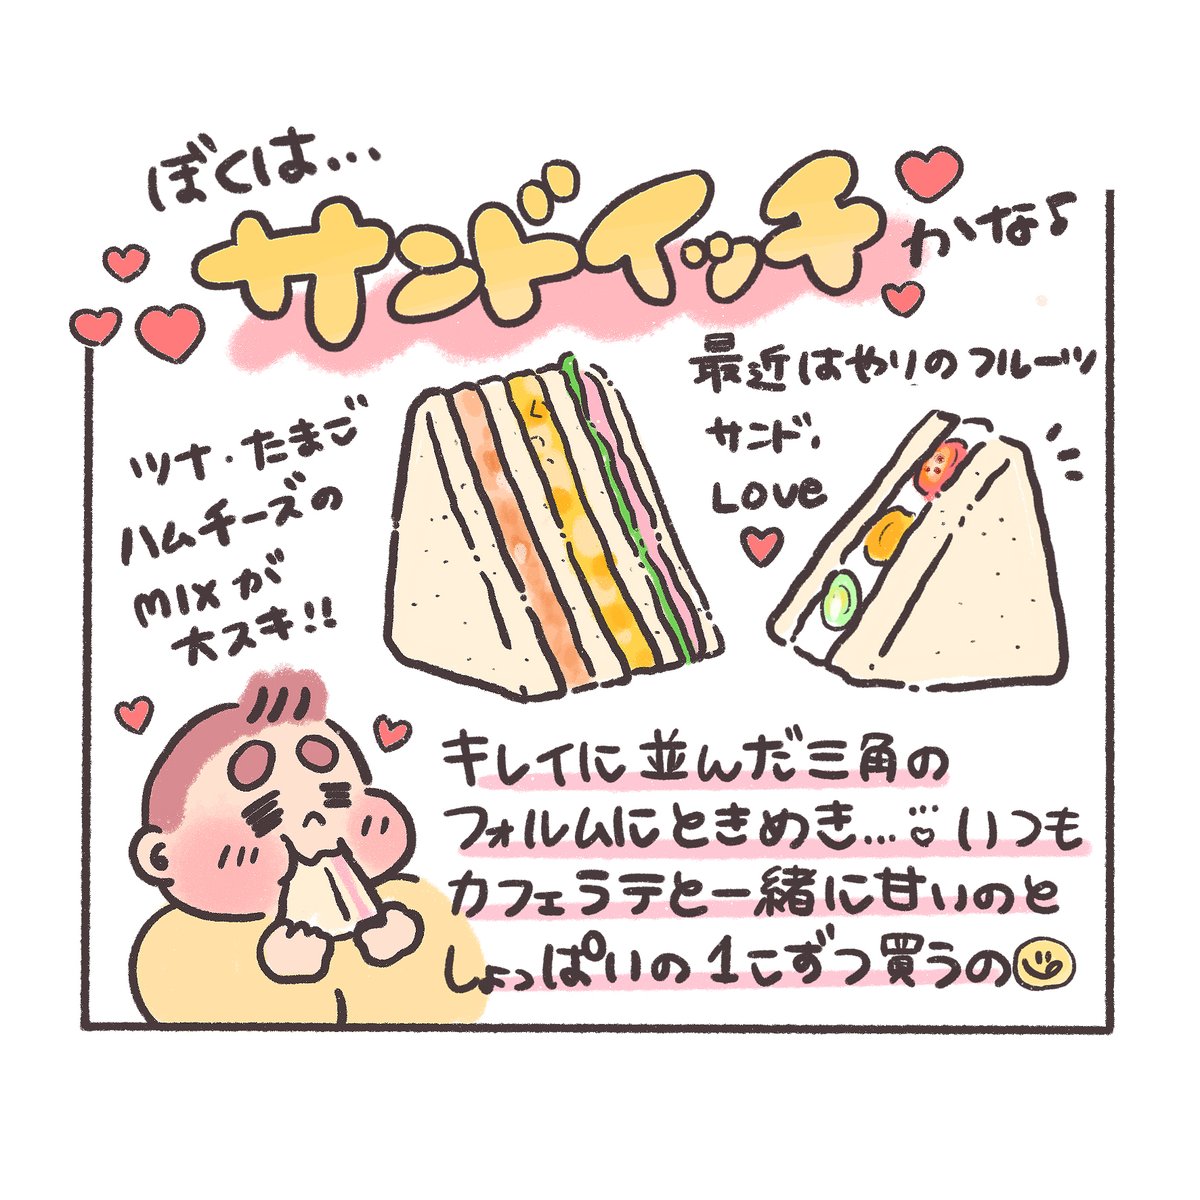 ぼくは…
サンドイッチ
かな♪
最近はやりのフルーツ
サンド、
LOVE
ツナ・たまご
ハムチーズの
MIXが
大スキ!!
キレイに並んだ三角の
フォルムにときめき…いつも
カフェラテと一緒に甘いのと
しょっぱいの1こずつ買うの